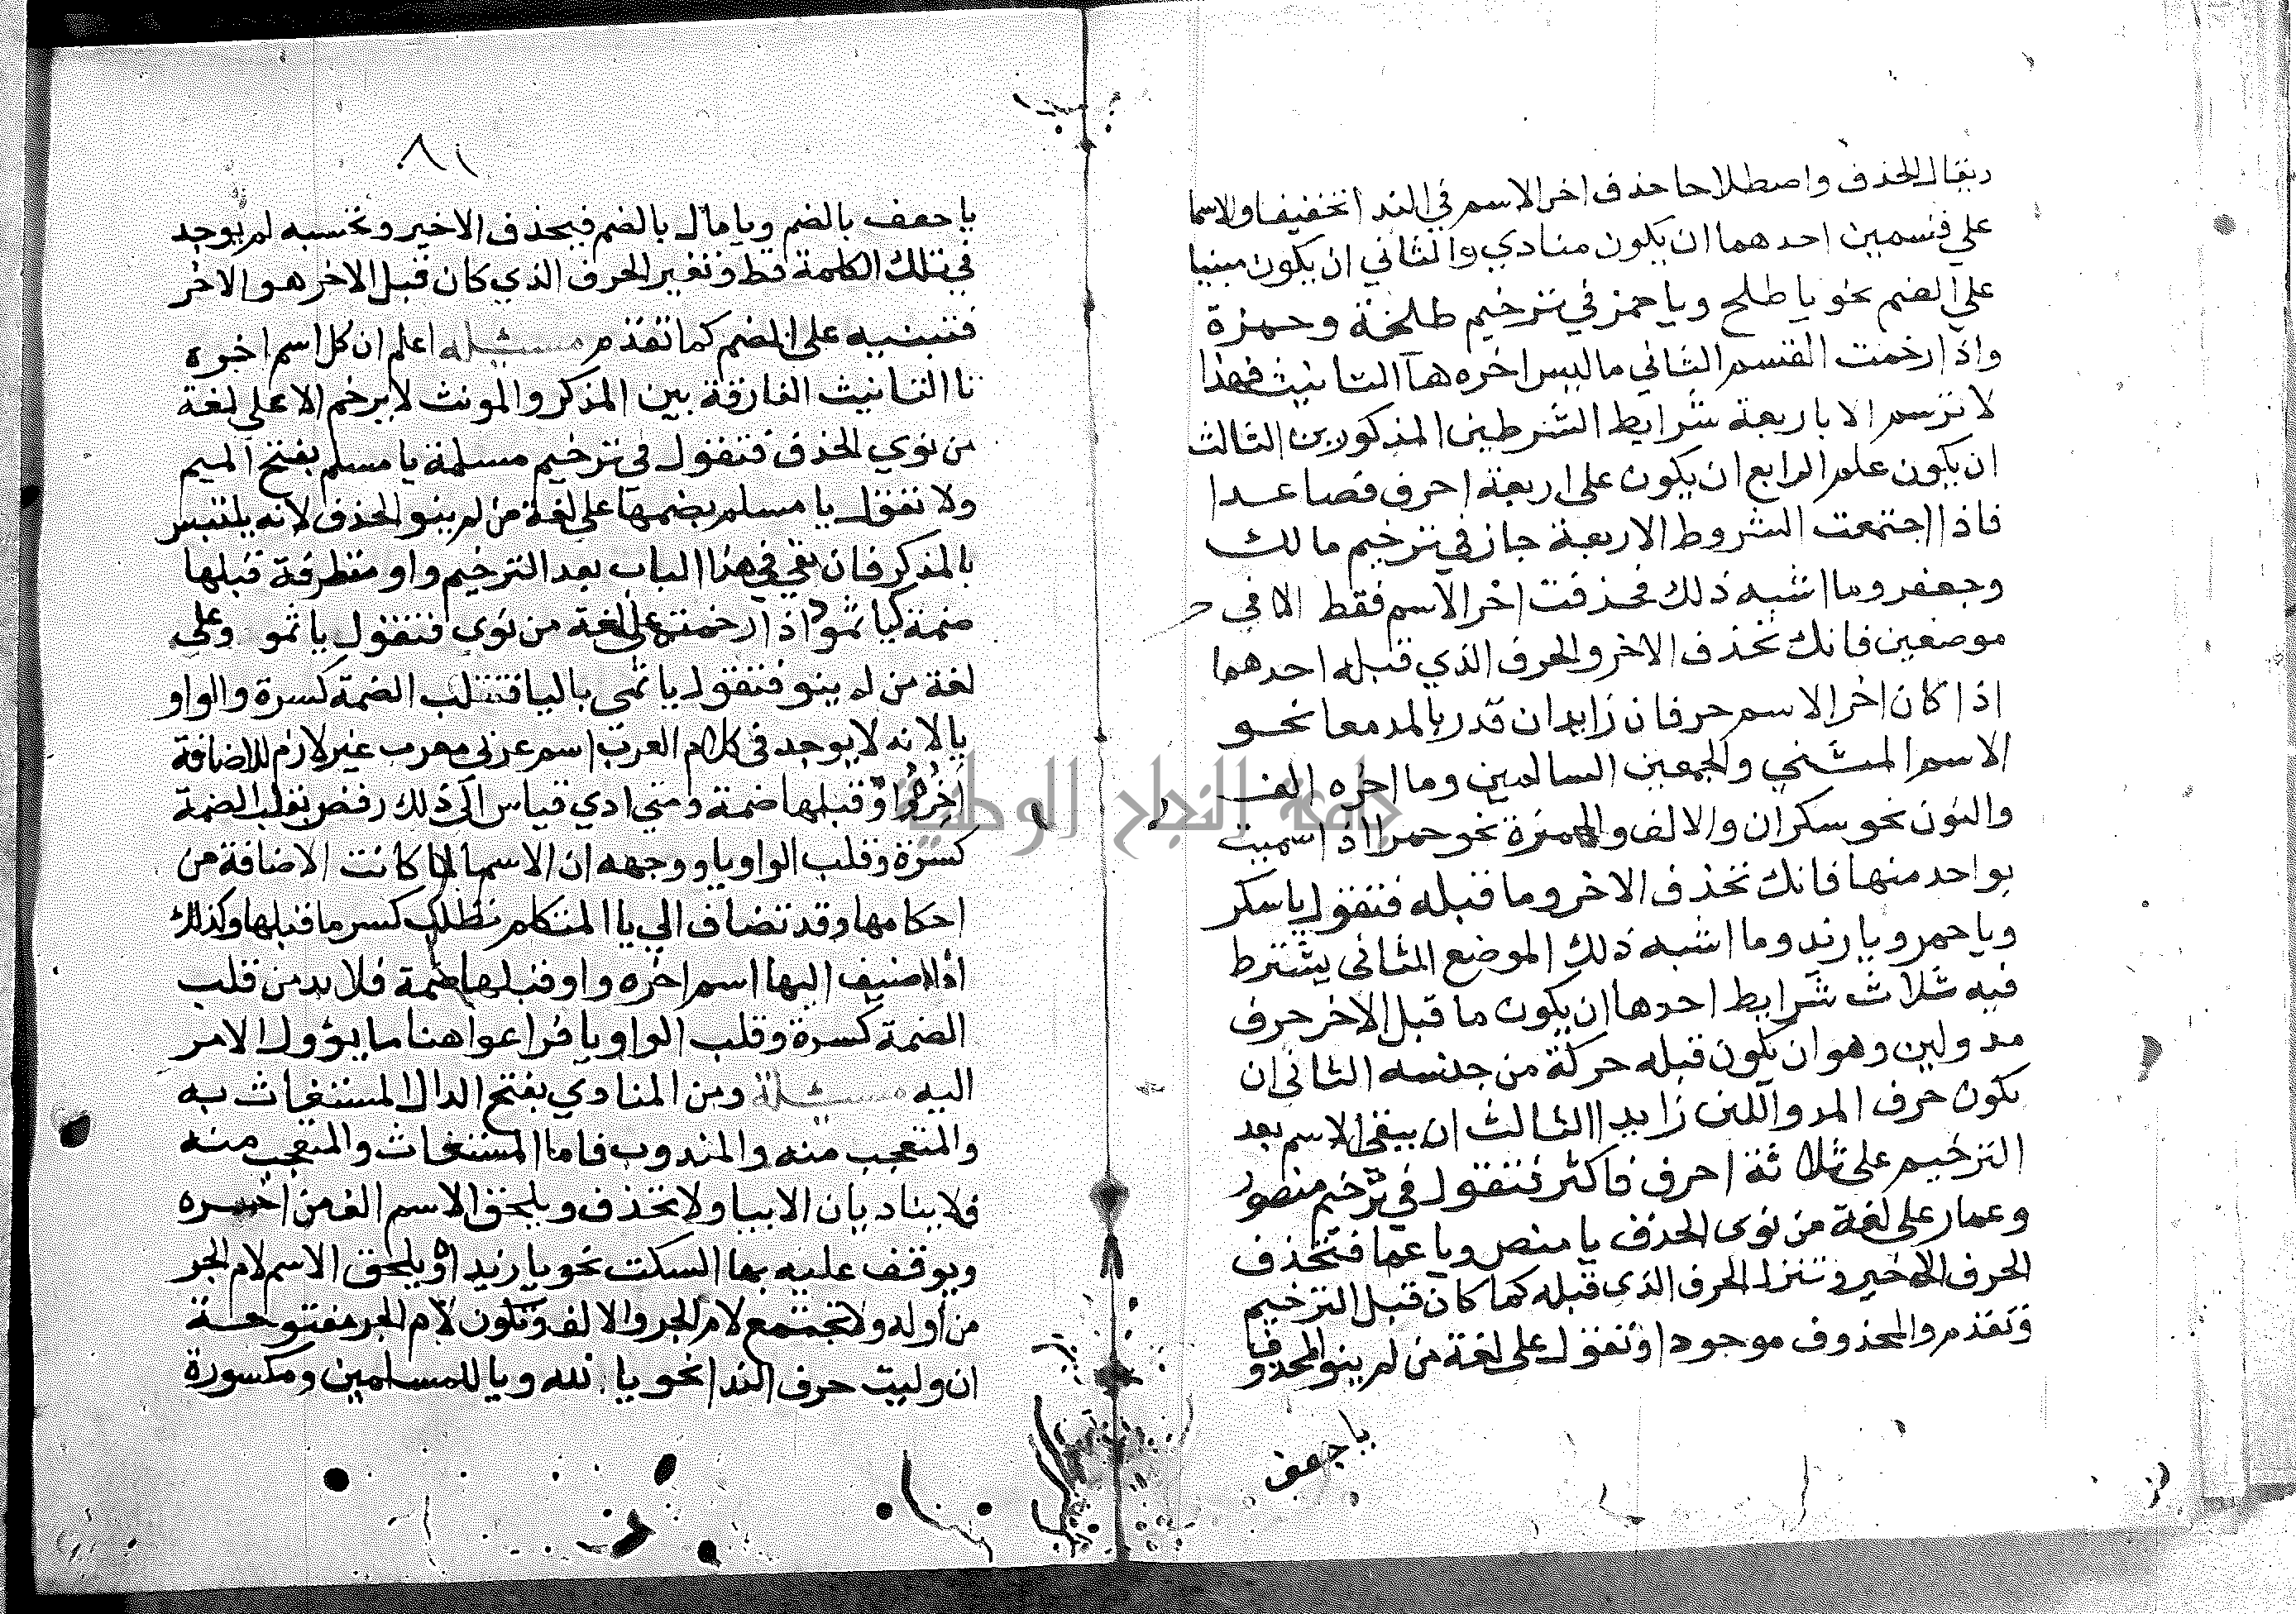 ريقال الحذف واصطلاحا حذف اخر الاسم في الندا تخفيفا والاسما
علي قسمين احدهما ان يكون منادي والثاني ان يكون مبنيا
علي الضم نحو يا طلح ويا حمز في ترخيم طلحة وحمزة
واذا رخمت القسم الثاني ما ليس اخره هآ التانيث فهذا
لا ترسم الا باربعة شرايط الشرطين المذكورين الثالث
ان يكون علم الرابع ان يكون على اربعة احرف فصاعدا
فاذا اجتمعت الشروط الاربعة جاز في ترخيم مالك
وجعفر وما اشبه ذلك فحذفت اخر الاسم فقط الا في
موضعين فانك تحذف الاخر والحرف الذي قبله احدهما
اذا كان اخر الاسم حرفان زايدان قدر بالمد معا نحو
الاسم المثني والجمعين السالمين وما اخره الف
والنون نحو سكران والالف والهمزة نحو حمرا اذ اسميت
بواحد منها فانك تحذف الاخر وما قبله فتقول يا سكر
ويا حمر ويا زيد وما اشبه ذلك الموضع الثاني يشترط
فيه ثلاث شرايط احدها ان يكون ما قبل الاخر حرف
مد ولين وهو ان تكون قبله حركة من جنسه الثاني ان
يكون حرف المد واللين زايدا الثالث ان يبقي الاسم بعد
الترخيم على ثلاثة احرف فاكثر فتقول في ترخيم منصور
وعمار على لغة من نوى الحذف يا منص ويا عما فتحذف
الحرف الاخير وتنزل الحرف الذي قبله كما كان قبل الترخيم
وتقدم والمحذوف موجودا وتقول على لغة من لم ينو المحذوف
يا جعف
٨١
يا جعف بالضم ويا مال بالضم فبحذف الاخير وتحسبه لم يوجد
في تلك الكلمة قط وتغير الحرف الذي كان قبل الاخر هو الاخر
فتبنيه على الضم كما تقدم مسئله اعلم ان كل اسم اخره
تا التانيث الفارقة بين المذكر والمونث لا يرخم الا على لغة
من نوي الحذف فتقول في ترخيم مسلمة يا مسلم بفتح الميم
ولا تقل يا مسلم بضمها على لغة من لم ينو الحذف لانه يلتبس
بالمذكر فان بقي في هذا الباب بعد الترخيم واو متطرفة قبلها
ضمة كيا ثمود اذا رخمته على لغة من نوى فتقول يا ثمو وعلى
لغة من لم ينو فتقول يا ثمى باليا فتقلب الضمة كسرة والواو
يا لانه لا يوجد في كلام العرب اسم عربي معرب غير لازم للاضافة
اخره واو قبلها ضمة ومتي ادي قياس الى ذلك رفض بقلب الضمة
كسرة وقلب الواو يا ووجهه ان الاسما لما كانت الاضافة من
احكامها وقد تضاف الي يا المتكلم تطلب كسر ما قبلها وكذلك
اذا اضيف اليها اسم اخره واو قبلها ضمة فلا بد من قلب
الضمة كسرة وقلب الواو يا فراعوا هنا ما يؤول الامر
اليه مسئلة ومن المنادي بفتح الدال المستغاث به
والمتعجب منه والمندوب فاما المستغاث والمتعجب منه
فلا يناديان الا بيا ولا تحذف ويلحق الاسم الف من اخره
ويوقف عليه بها السكت نحو يا زيداه ويلحق الاسم لام الجر
من اوله ولا تجتمع لام الجر والالف وتكون لام الجر مفتوحة
ان وليت حرف الندا نحو يا لله ويا للمسلمين ومكسورة
جامعة النجاح الوطنية